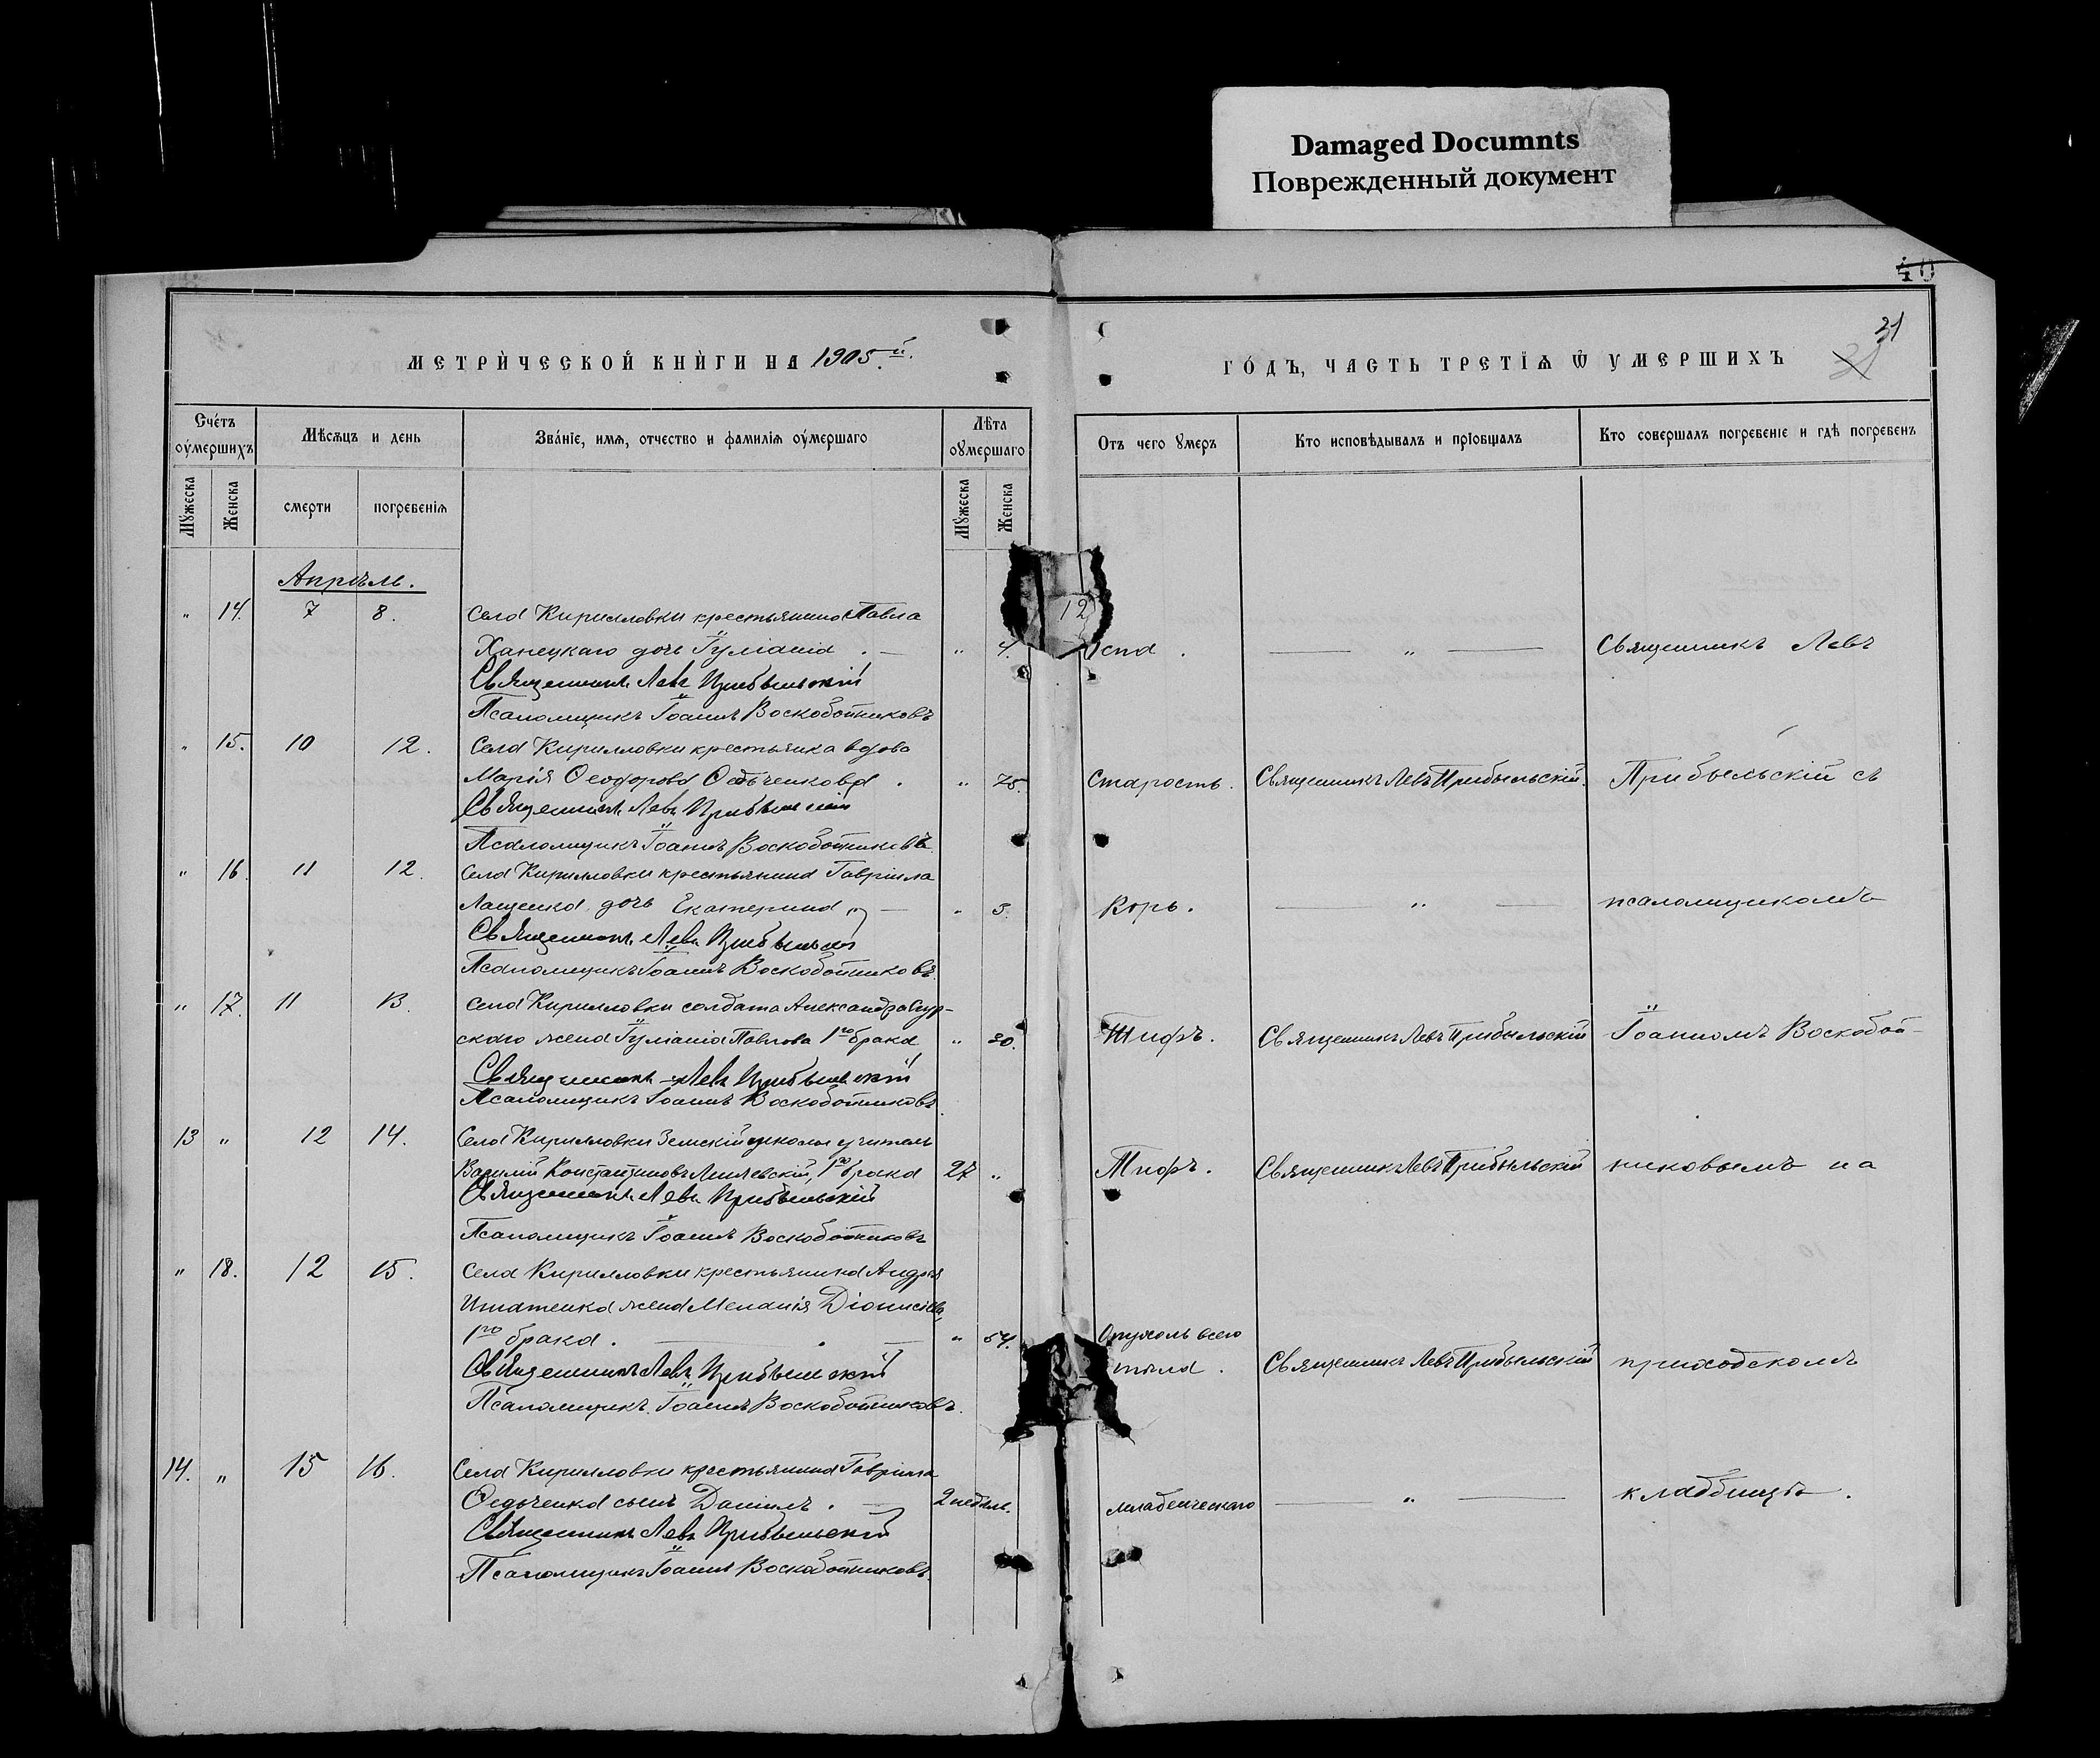 Damaged Documnts
Поврежденный документ
40
31
31
МЕТРИ́ЧЕСКОЙ КНИ́ГИ НА 1905й.
ГО́ДЪ, ЧАСТЬ ТРЕТІѦ Ѿ УМЕРШИХЪ
Счéтъ оу́мершихъ
Мѣсѧцъ и день
Звáнїе, имѧ, отчество и фамилїѧ оу́мершаго
Лѣта оумершаго
Отъ чего умеръ
Кто исповѣдывалъ и прїобщалъ
Кто совершалъ погребенїе и гдѣ погребенъ
Мужеска
Женска
смерти
погребенїѧ
Мужеска
Женска
Апрѣль.
" 14. 7 8. Села Кирилловки крестьянина Павла
12
Ханецкаго дочь Іуліанія . — " 4. Оспа . — " — Священникъ Левъ
Священникъ Левъ Прибыльскій
Псаломщикъ Іоаннъ Воскобойниковъ
" 15. 10 12. Села Кирилловки крестьянка вдова
Марія Ѳеодорова Ѳедьченкова . " 75. Старость. Священникъ Левъ Прибыльскій. Прибыльскій съ
Священникъ Левъ Прибыльскій
Псаломщикъ Іоаннъ Воскобойниковъ
" 16. 11 12. Села Кирилловки крестьянина Гавріила
Лащенка дочь Екатерина — " 3. Корь. — " — псаломщикомъ
Священникъ Левъ Прибыльскій
Псаломщикъ Іоаннъ Воскобойниковъ
" 17. 11 13. Села Кирилловки солдата Александра
скаго жена Іуліанія Павлова 1го брака " 30. Тифъ. Священникъ Левъ Прибыльскій Іоанномъ Воскобой-
Священникъ Левъ Прибыльскій
Псаломщикъ Іоаннъ Воскобойниковъ
13 " 12 14. Села Кирилловки Земскій школы учитель
Василій Константиновъ 1го брака 27 " Тифъ. Священникъ Левъ Прибыльскій никовымъ на
Священникъ Левъ Прибыльскій
Псаломщикъ Іоаннъ Воскобойниковъ
" 18. 12 15. Села Кирилловки крестьянина Андрея
Игнатенка жена Меланія Діонисіева
1го брака . — . — " 54. Опухоль всего
Священникъ Левъ Прибыльскій тѣла . Священникъ Левъ Прибыльскій приходскомъ
Псаломщикъ Іоаннъ Воскобойниковъ.
14. " 15 16. Села Кирилловки крестьянина Гавріила
Ѳедьченка сынъ Даніилъ . — 2 недѣль. младенческаго — " — кладбищѣ .
Священникъ Левъ Прибыльскій
Псаломщикъ Іоаннъ Воскобойниковъ.